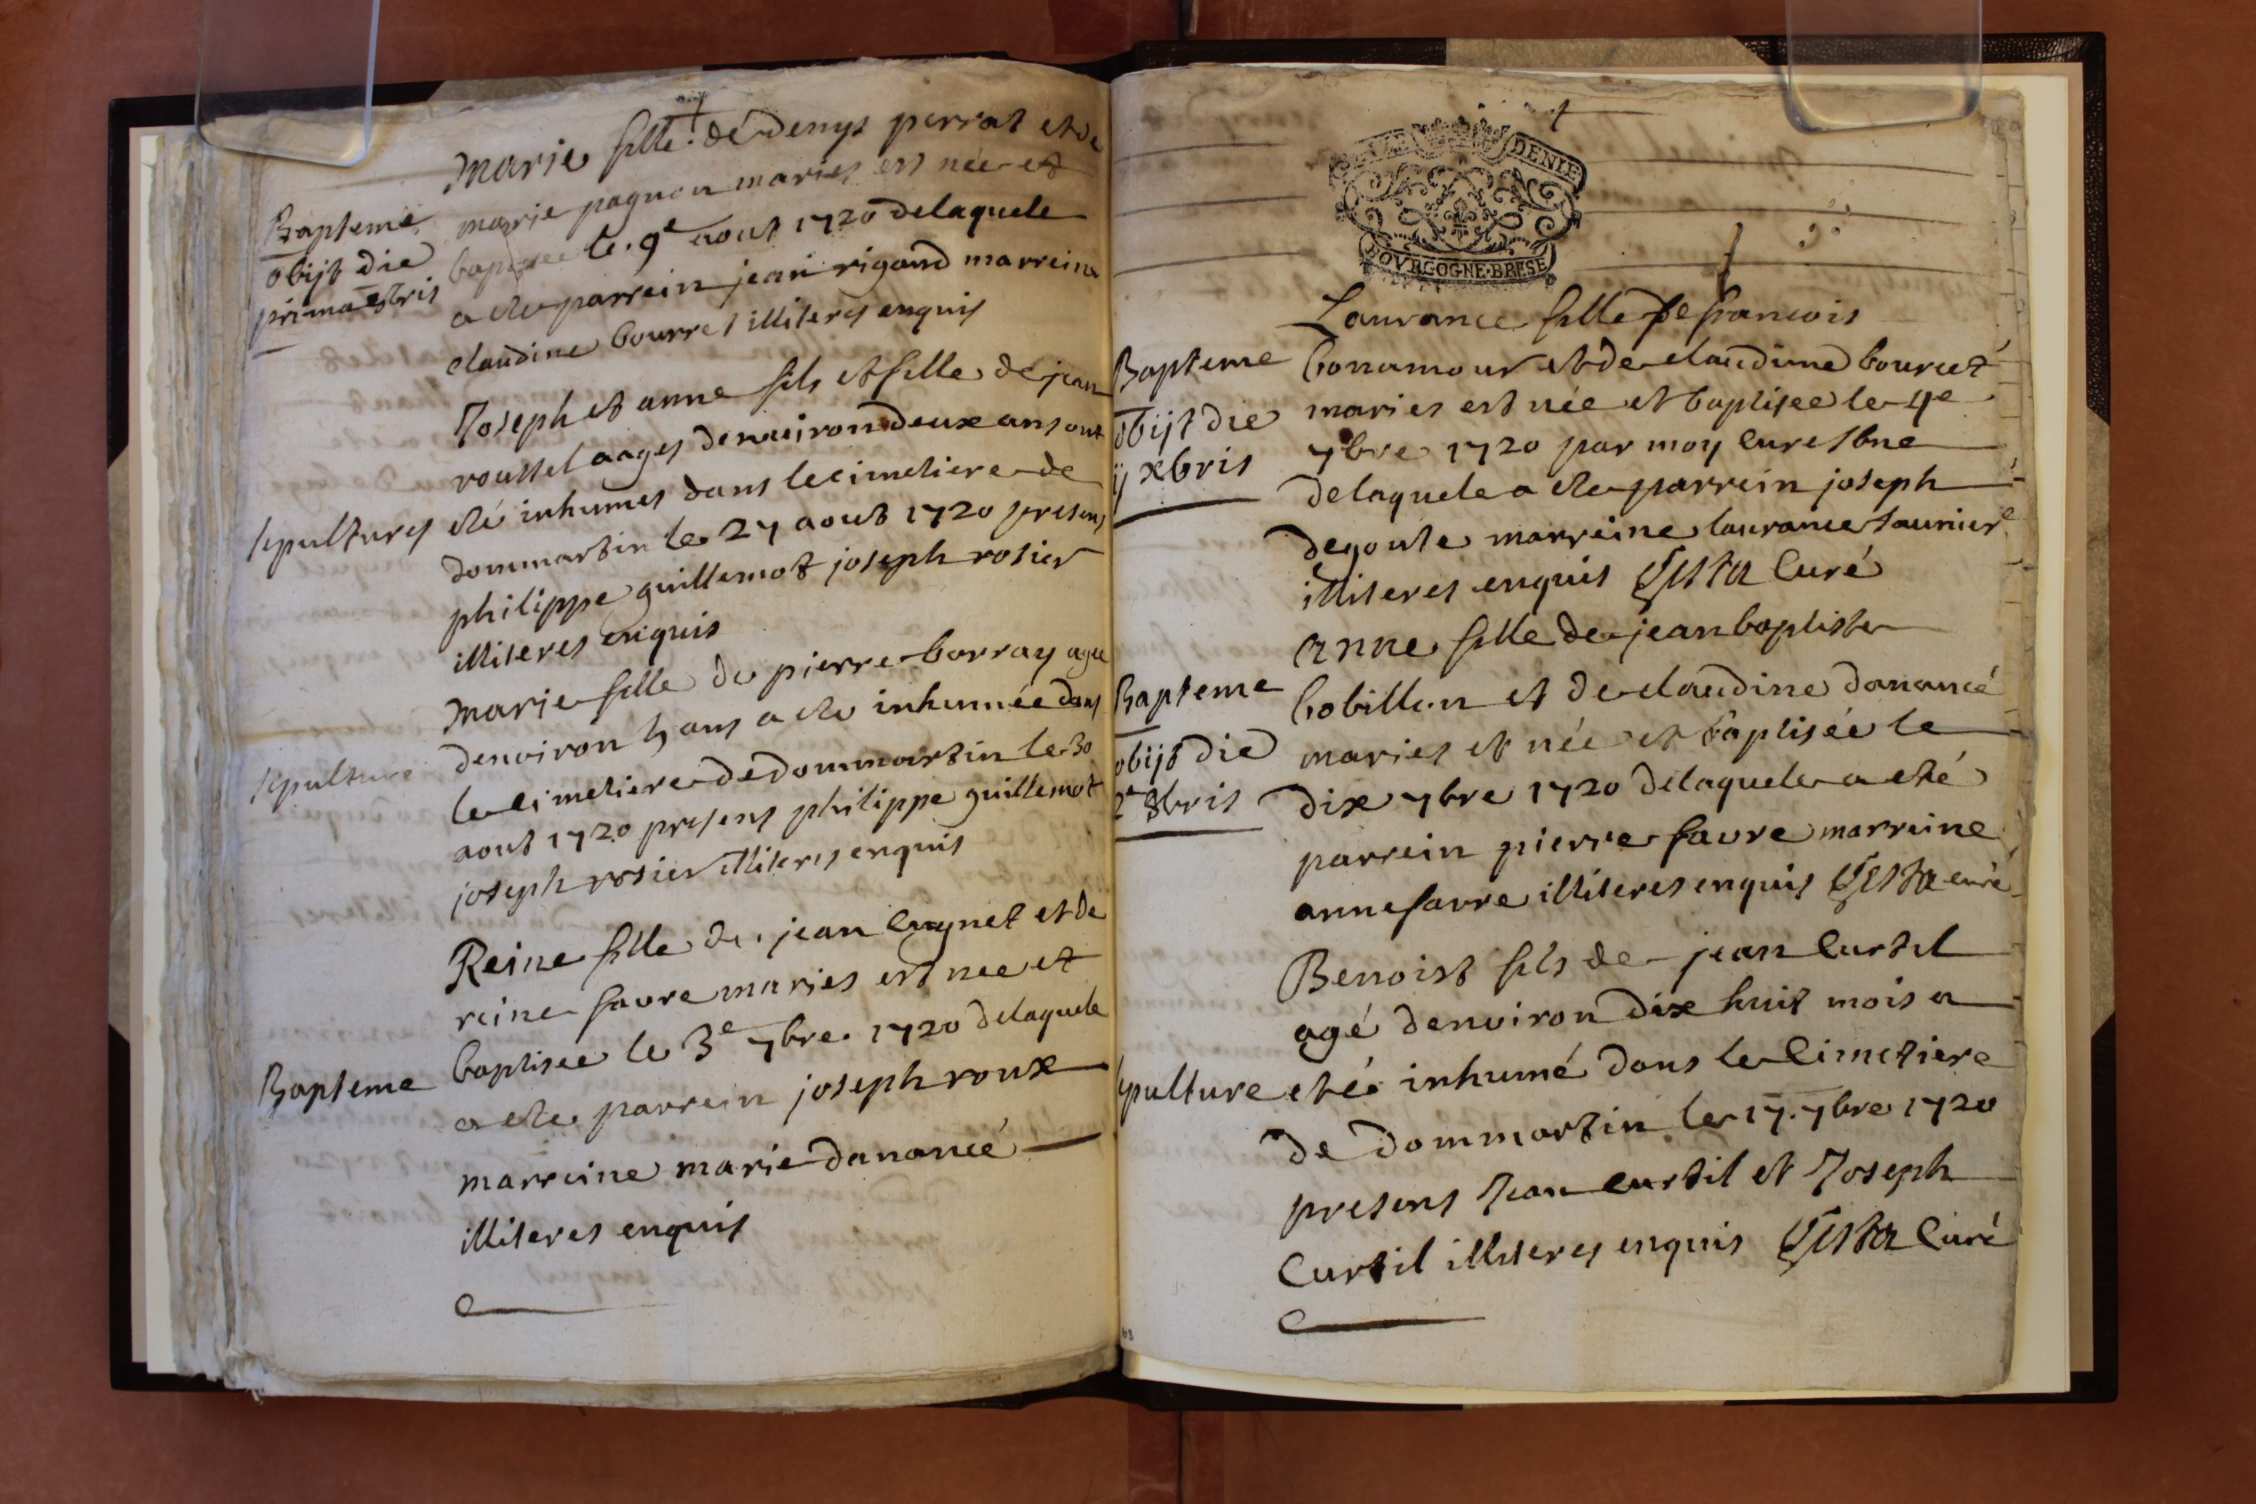 Marie fille de denys perrat et de
marie pagnon maries est née et
Bapteme
obijt die
prima 8bris
baptisee le 9e aout 1720 delaquele
a ete parrein jean rigaud marreine
claudine bourret illiteres enquis
Joseph et anne fils et fille de jean
roussel aages denviron deux ans ont
sepultures
eté inhumes dans le cimetiere de
dommartin le 27 aout 1720 presens
philippe guillemot joseph rosier
illiteres enquis
Marie fille de pierre borray agee
sepulture
denviron ans a ete inhumée dans
le cimetiere de dommartin le 30
aout 1720 presens philippe guillemot
joseph rosier illiteres enquis
Reine fille de jean Cugnet et de
reine favre maries est nee et
Bapteme
baptisee le 3e 7bre 1720 delaquele
a ete parrein joseph roux
marreine marie danancé
illiteres enquis
DENIE
BOVRGOGNE·BRESE
Laurance fille de francois
Bapteme
obijt die
ij xbris
bonamour et de claudine bourcet
maries est née et baptisee le 4e
7bre 1720 par moy cure sbne
delaquele a ete parrein joseph
degoute marreine laurance saunier
illiteres enquis Curé
Anne fille de jean baptiste
Bapteme
obijt die
2e 8bris
bobillon et de claudine danancé
maries et née et baptisée le
dix 7bre 1720 delaquele a eté
parrein pierre favre marreine
anne favre illiteres enquis curé
Benoist fils de jean Curtil
agé denviron dix huit mois a
sepulture
eté inhumé dans le Cimetiere
de dommartin le 17. 7bre 1720
presens Jean curtil et Joseph
Curtil illiteres enquis Curé